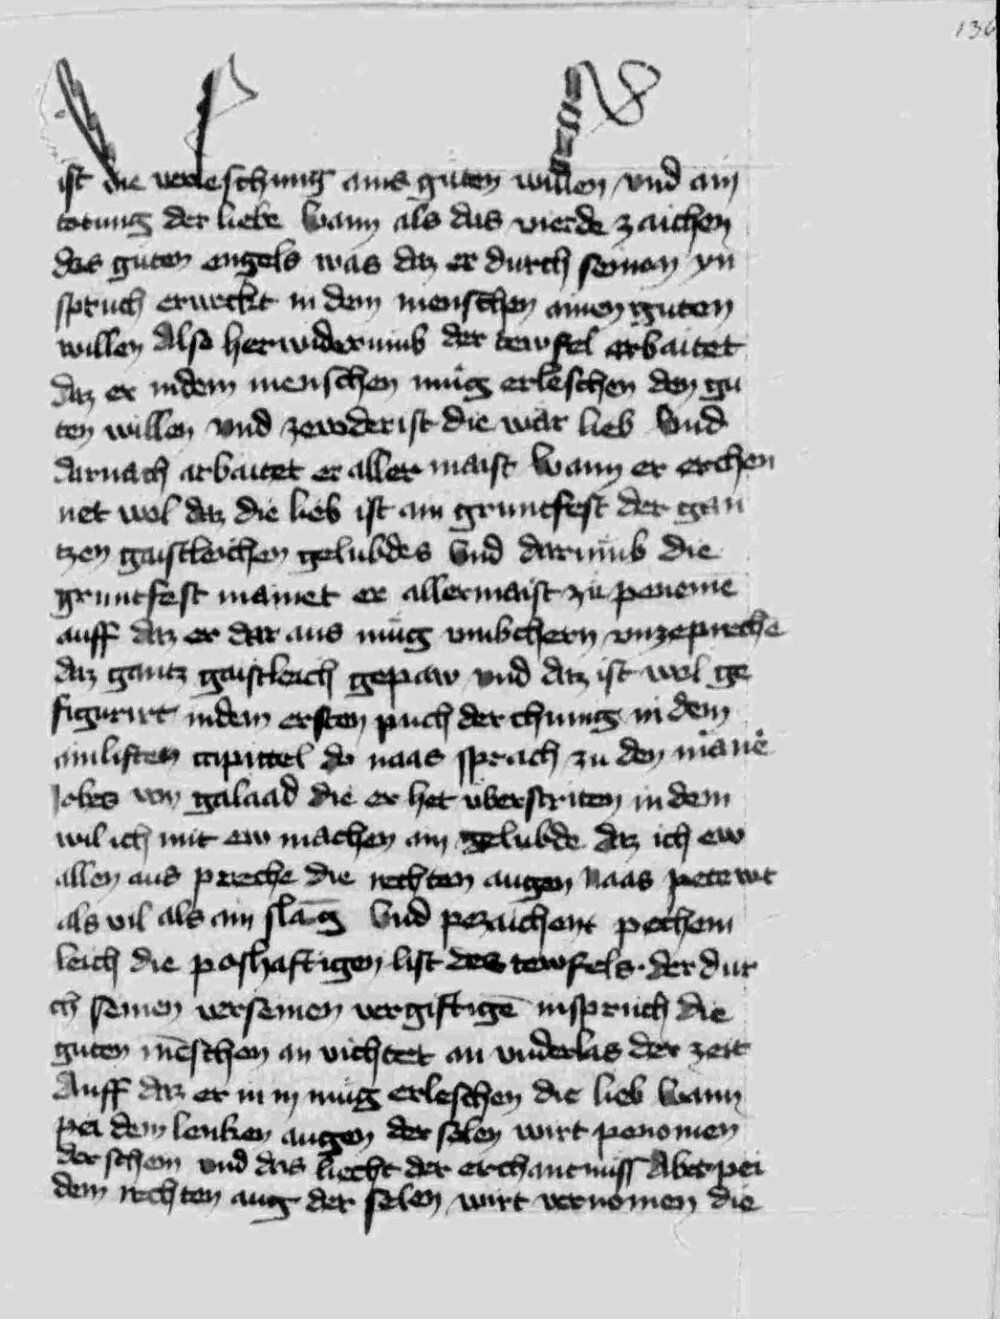 136
ist die verleschung ains guten willen und ain
totung der liebe Wann als das vierde zaichen
des guten engels was daz er durch seinen yn
spruch erweckt in dem menschen ainen guten
willen Also herwiderumb der tewfel arbaitet
daz er indem menschen müg erleschen den gu
ten willen und zewoderist die war lieb Und
darnach arbaitet er aller maist Wann er erchen
net wol daz die lieb ist ain gruntfest der gan
tzen gaistleichen gelubdes Und darumb die
gruntfest mainet er allermaist zu penemē
auff daz er dar aus müg umbchern unzepreche
daz gantz gaistleich gepaw und daz ist wol ge
figurirt indem ersten puch der chunig in dem
ainliften capittel do naas sprach zu den māne
Jobes von galaad die er het uberstriten in dem
wil ich mit ew machen ain gelubde daz ich ew
allen aus preche die rechten augen Naas petewt
als vil als ain slāg Und pezaichent pechem
leich die poshaftigen list des tewfels · der dur
ch seinen vergiftigē inspruch die
guten mēschen an vichtet an underlas der zeit
Auff daz er in in müg erleschen die lieb Wann
pei dem lenken augen der selen wirt penomen
der schein und das liecht der erchantnuss Aber pei
dem rechten aug der selen wirt vernomen die